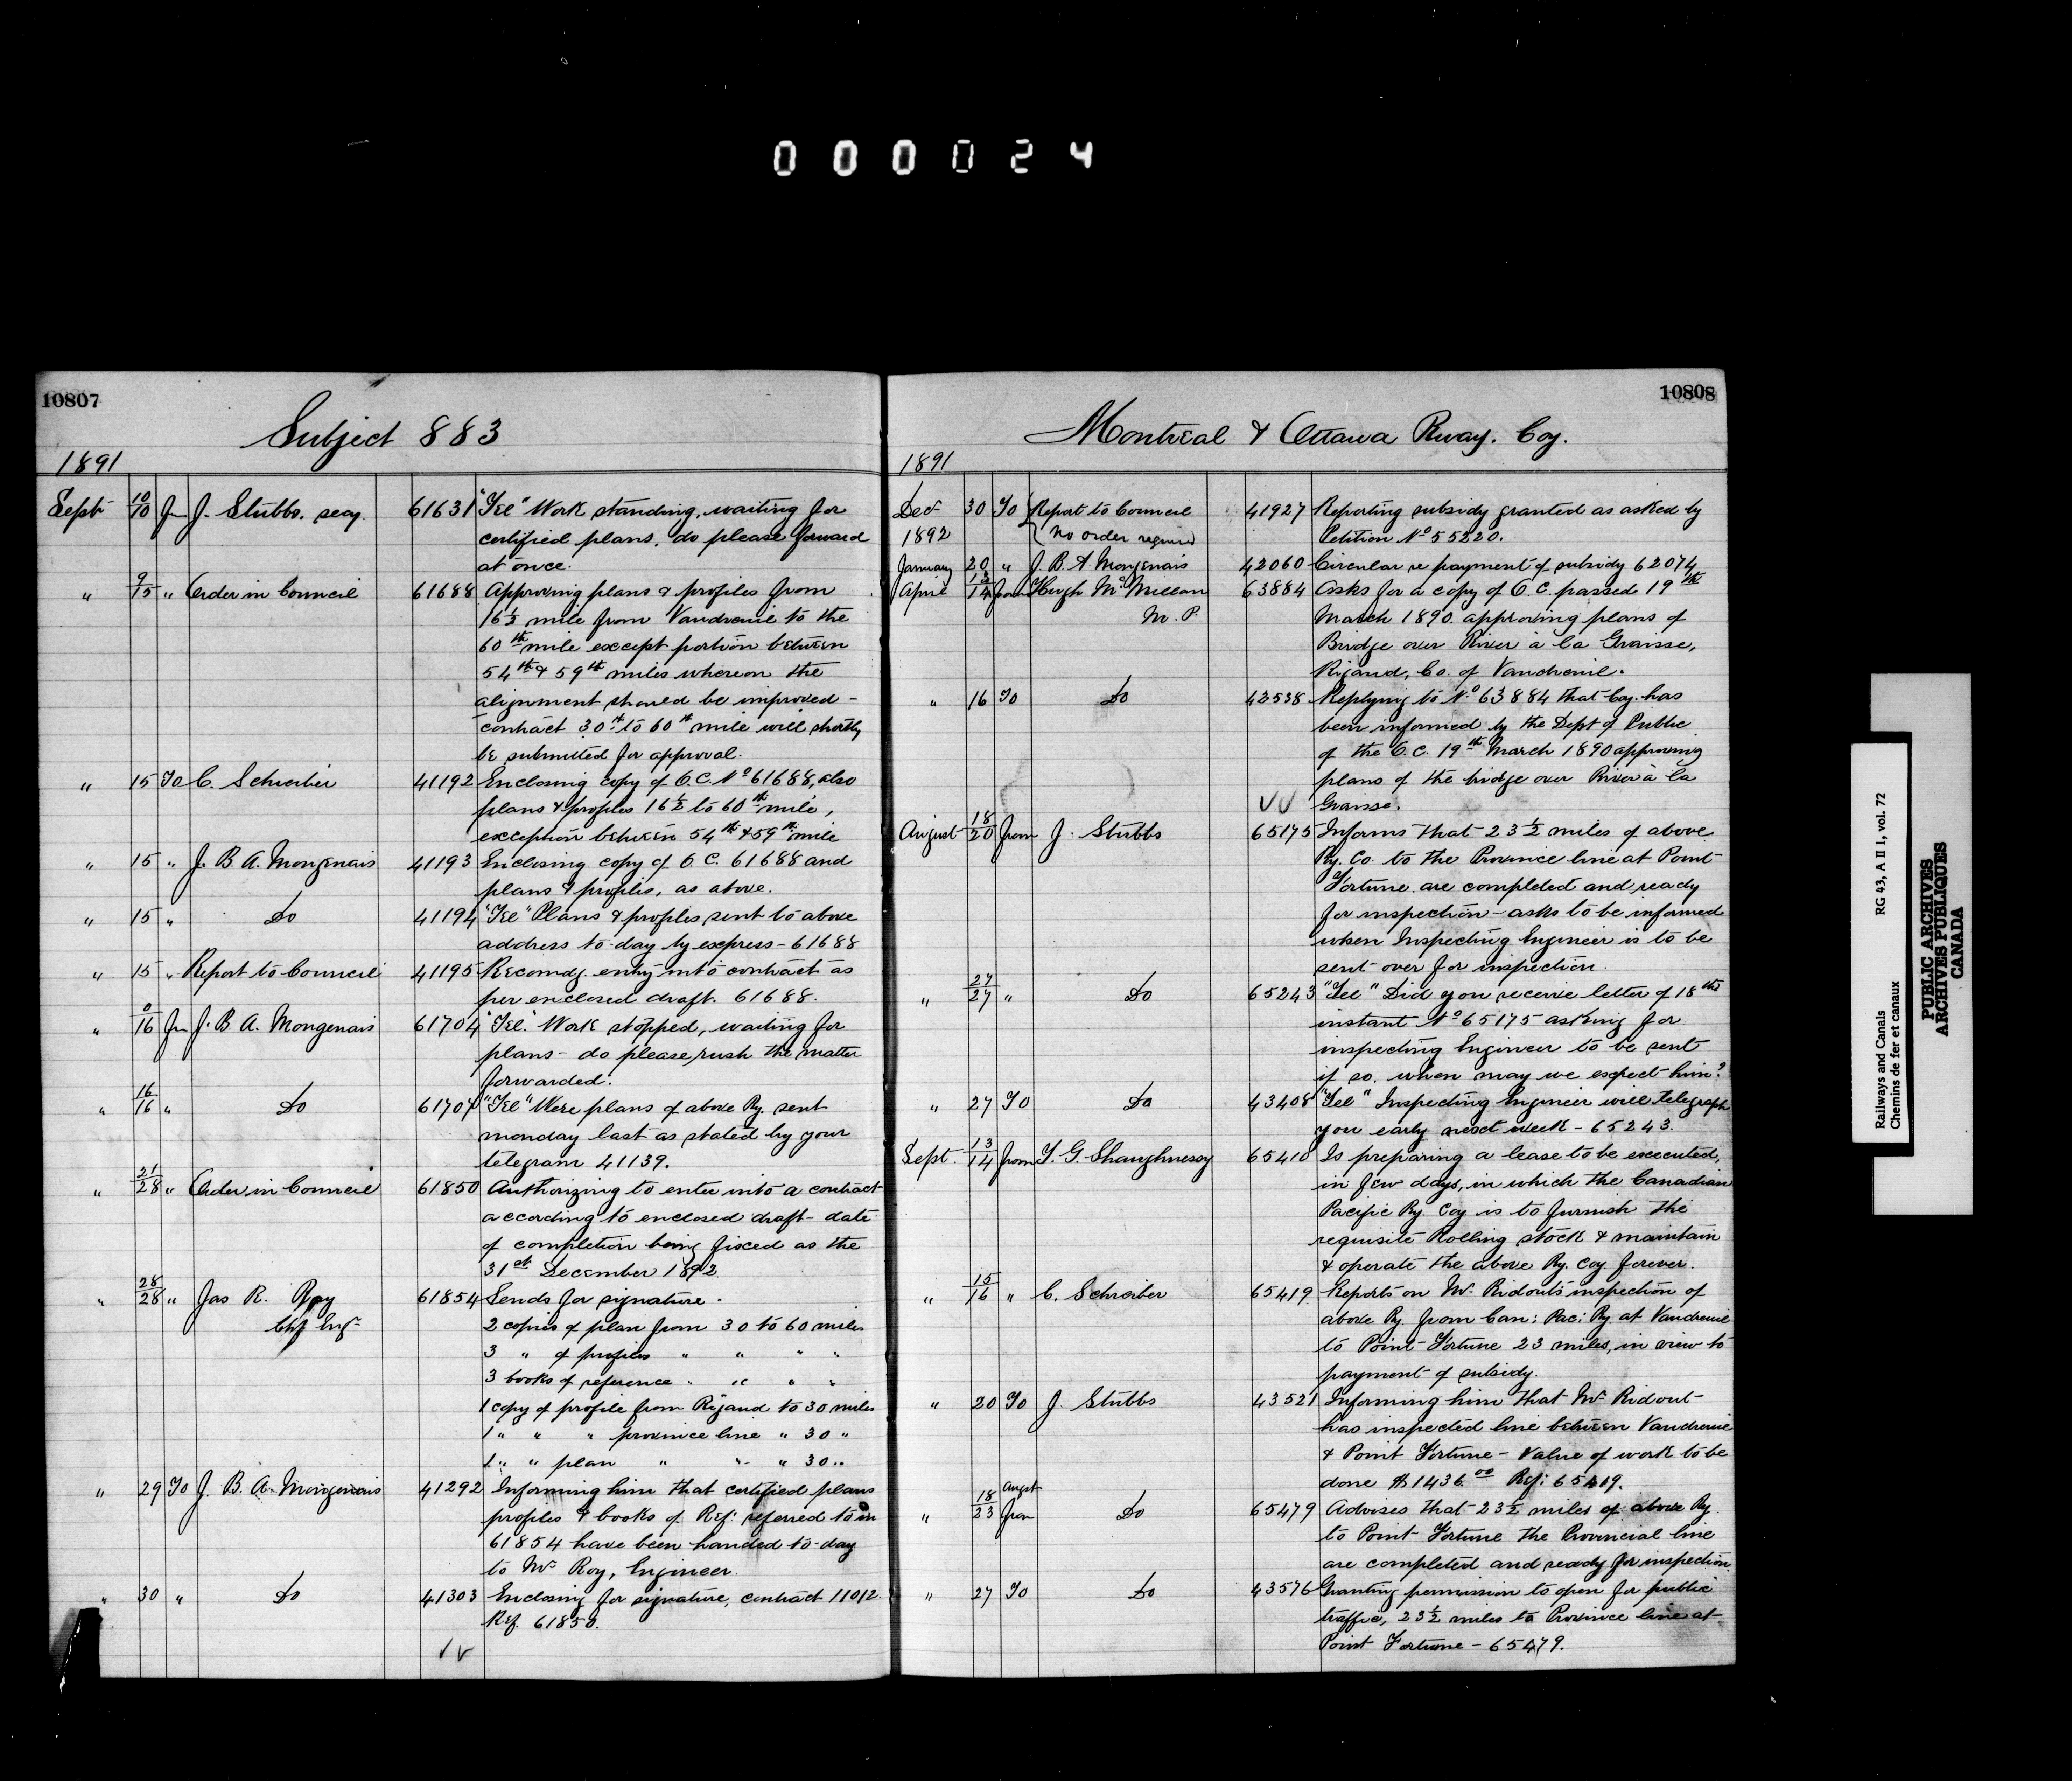 000024
10807
Subject 883
1891
Sept 10/10 Fm J. Stubbs. secy. 61631 "Tel" Work standing, waiting for
certified plans, do please forward
at once.
" 9/15 " Order in Council 61688 Approving plans & profiles from
16½ mile from Vaudreuil to the
60th mile except portion between
54th & 59th miles whereon the
alignment should be improved -
contract 30th to 60th mile will shortly
be submitted for approval.
" 15 To C. Schreiber 41192 Enclosing copy of O.C. No 61688, also
plans & profiles 16½ to 60th mile,
exception between 54th & 59th mile
" 15 " J. B A. Mongenais 41193 Enclosing copy of O.C. 61688 and
plans & profiles, as above.
" 15 " Do 41194 "Tel" Plans & profiles sent to above
address to-day by express - 61688
" 15 " Report to Council 41195 Recomdg. entry into contract as
per enclosed draft. 61688.
" 0/16 Fm J. B A. Mongenais 61704 "Tel." Work stopped, waiting for
plans - do please rush the matter
forwarded.
" 16/16 " Do 61707 "Tel" Were plans of above Ry. sent
monday last as stated by your
telegram 41139.
" 21/28 " Order in Council 61850 Authorizing to enter into a contract
according to enclosed draft - date
of completion being fixed as the
31st December 1892.
" 28/28 " Jas R. Roy 61854 Sends for signature -
Chf Engr 2 copies of plan from 30 to 60 miles
3 " of profiles " " " "
3 books of reference " " " "
1 copy of profile from Rigaud to 30 miles
1 " " " province line " 30 "
1 " " plan " " " 30 "
" 29 To J. B. A. Mongenais 41292 Informing him that certified plans
profiles & books of Ref: referred to in
61854 have been handed to-day
to Mr Roy, Engineer.
" 30 " Do 41303 Enclosing for signature, contract 11012
Ref. 61850.
10808
Montreal & Ottawa Rway. Coy.
1891
Dec 30 To Report to Council 41927 Reporting subsidy granted as asked by
1892 No order required Petition No 55220.
January 20 " J. B. A Mongenais 42060 Circular re payment of subsidy 62074
April 13/14 from Hugh McMillan 63884 Asks for a copy of O.C. passed 19th
M.P. March 1890 approving plans of
Bridge over River à la Graisse,
Rigaud, Co. of Vaudreuil.
" 16 To Do 42538 Replying to No 63884 that Coy. has
been informed by the Dept of Public
of the O.C. 19th March 1890 approving
plans of the bridge over River à la
Graisse.
August 18/20 from J. Stubbs 65175 Informs that 23½ miles of above
Ry. Co. to the Province line at Point
Fortune are completed and ready
for inspection - asks to be informed
when Inspecting Engineer is to be
sent over for inspection.
" 27/27 " Do 65243 "Tel" Did you receive letter of 18th
instant No 65175 asking for
inspecting Engineer to be sent
if so, when may we expect him?
" 27 To Do 43408 "Tel" Inspecting Engineer will telegraph
you early next week - 65243.
Sept. 13/14 from T. G. Shaughnessy 65410 Is preparing a lease to be executed,
in few days, in which the Canadian
Pacific Ry. Coy is to furnish the
requisite Rolling stock & maintain
& operate the above Ry. Coy forever.
" 15/16 " C. Schreiber 65419 Reports on Mr. Ridout's inspection of
above Ry. from Can: Pac: Ry. at Vaudreuil
to Point Fortune 23 miles, in view to
payment of subsidy.
" 20 To J. Stubbs 43521 Informing him that Mr. Ridout
has inspected line between Vaudreuil
& Point Fortune - Value of work to be
done $1436.00 Ref: 65419.
" 18 Augst/23 from Do 65479 Advises that 23½ miles of above Ry.
to Point Fortune the Provincial line
are completed and ready for inspection.
" 27 To Do 43576 Granting permission to open for public
traffic, 23½ miles to Province line at
Point Fortune - 65479.
Railways and Canals RG 43, A II 1, vol. 72
Chemins de fer et canaux
PUBLIC ARCHIVES
ARCHIVES PUBLIQUES
CANADA